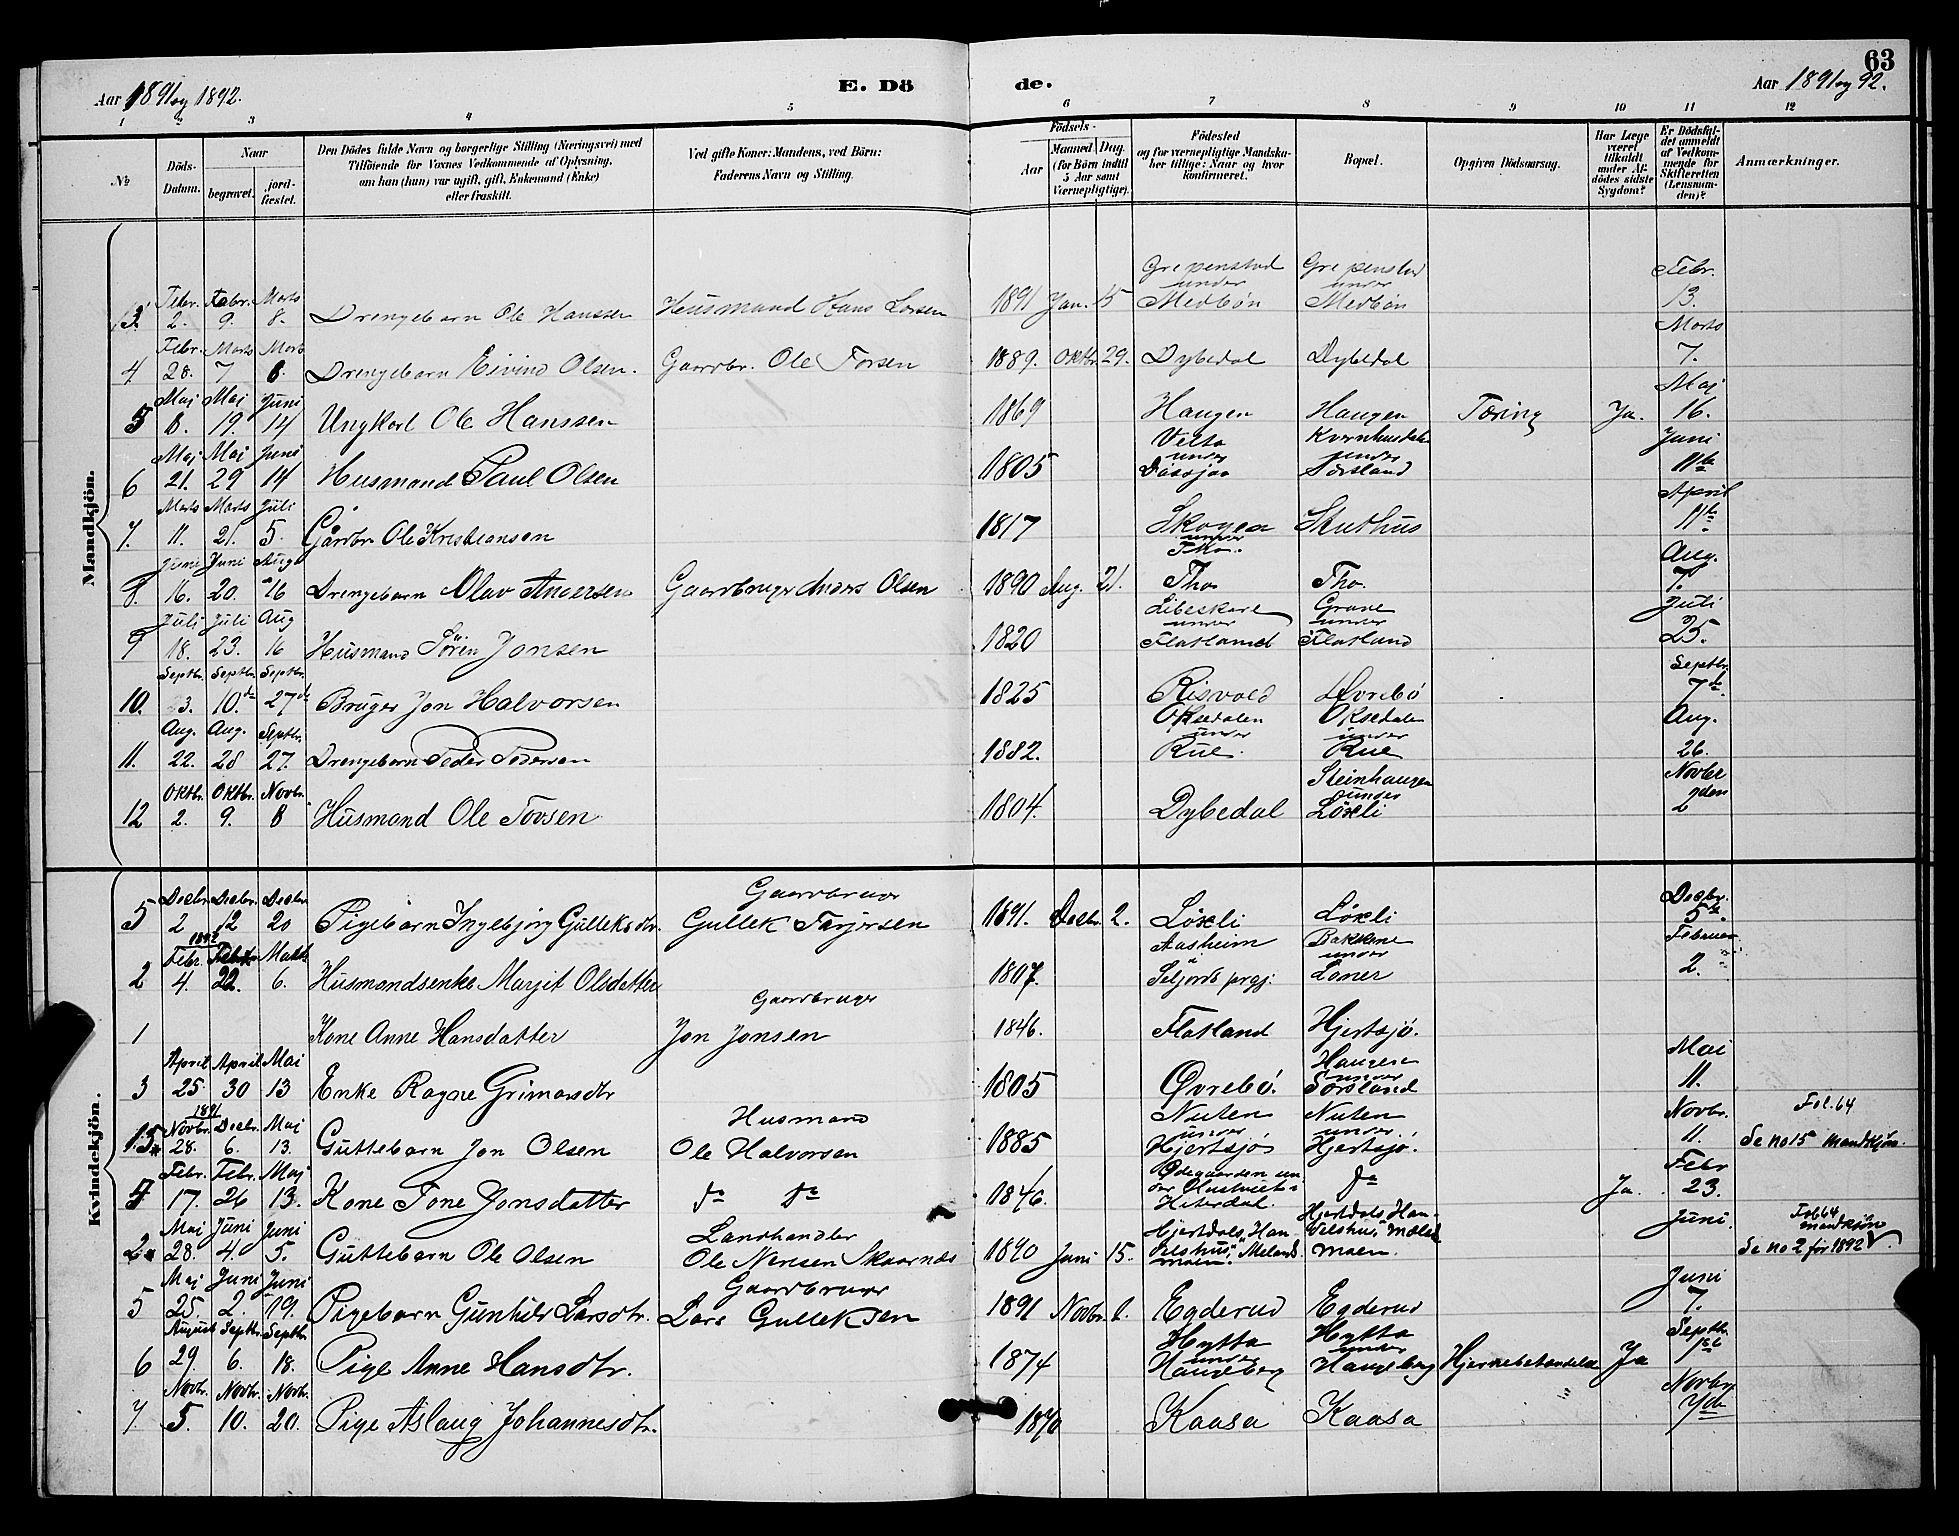 63
Aar 1891 og 1892.
E. Dö
de.
Aar 1891 og 92.
1 2 3 4 5 6 7 8 9 10 11 12
No
Döds-Datum.
Naar
begravet.
jord-fæstet.
Den Dödes fulde Navn og borgerlige Stilling (Næringsvei) med
Tilföiende for Voxnes Vedkommende af Oplysning,
om han (hun) var ugift, gift, Enkemand (Enke)
eller fraskilt.
Ved gifte Koner: Mandens, ved Börn:
Faderens Navn og Stilling.
Födsels-
Aar
Maaned Dag.
(for Börn indtil
5 Aar samt
Værnepligtige).
Födested
og for værnepligtige Mandska-
ber tillige: Naar og hvor
konfirmeret.
Bopæl.
Opgiven Dödsaarsag.
Har Læge
været
tilkaldt
under Af-
dödes sidste
Sygdom?
Er Dödsfal-
det anmeldt
af Vedkom-
mende for
Skifteretten
(Lensman-
den)?
Anmærkninger.
Mandkjön.
3. Febr. 2. Febr. 9. Marts 8. Drengebarn Ole Hanssen Husmand Hans Larsen 1891 Jan. 15 Grepenstad under Medbön Grepenstad under Medbön Febr. 13.
4 Febr. 28. Marts 7 Marts 8. Drengebarn Eivind Olsen. Gaardbr. Ole Torsen 1889. Oktbr. 29. Dybedal Dybedal Marts 7.
5 Maj 8. Maj 19. Juni 14 Ungkarl Ole Hanssen 1869 Haugen Haugen Tæring Ja. Maj 16.
6 Maj 21. Maj 29 Juni 14 Husmand Paul Olsen 1805 under under Sorsland Juni 11te
7. Marts 11. Marts 21. Juli 5. Gårdbr. Ole Kristiansen 1817 Skogen under Tho. Skuthus April 11te
8. Juni 16. Juni 20. Aug. 16 Drengebarn Olav Andersen Gaardbruger Anders Olsen 1890 Aug. 21. Tho Tho. Aug. 7.
9 Juli 18. Juli 23. Aug 16 Husmand Sören Jonsen 1820 Libeskare under Flatland Grave under Flatland Juli 25.
10. Septbr. 3. Septbr. 10de Septbr. 27de Bruger Jon Halvorsen 1825 Risvold Øvrebö Septbr. 7de.
11. Aug. 22. Aug. 28 Septbr. 27. Drengebarn Peder Pedersen 1882. Oksedalen under Rue. Oksedalen under Rue Aug. 26.
12 Oktbr. 2. Oktbr. 9. Novbr. 8 Husmand Ole Tovsen 1804. Dybedal Steinhaugen under Löxli Novbr 2den
Kvindekjön.
5 Decbr 2 Decbr. 12 Decbr 20 Pigebarn Ingebjörg Gulleksdtr. Gaardbruger Gullek Tarjersen 1891. Decbr. 2. Löxli Löxli Decbr. 5te.
2 1892 Febr. 4. Febr. 22. Marts 6. Husmandsenke Margit Olsdatter 1807. Aasheim i Seljords prgj. Bakkene under Loner Februar 2.
1 Kone Anne Hansdatter Gaardbruger Jon Jonsen 1846. Flatland Hjertsjö.
3 April 25 April 30 Maj 13 Enke Ragne Grimarsdtr 1805 Øvrebö. Haugen under Sorsland Mai 11.
15* 1891 Novbr. 28. Decbr. 6. Maj 13. Guttebarn Jon Olsen Husmand Ole Halvorsen 1885 Nuten under Hjertsjö Nuten under Hjertsjö. Novbr. 11. Fol. 64 Se no 15 mandkjön.
4 Febr. 17. Febr. 26 Maj 13. Kone Tone Jonsdatter do do 1846. Ødegaarden under Hiterdal. do Ja. Febr 23.
2* Maj 28. Juni 4. Juni 5. Guttebarn Ole Olsen Landhandler Ole Nensen Skaarnes 1890 Juni 15. Hjertdals Handelshus, Melandsmoen. Hjertdals Handelshus, Melandmoen. Juni. Fol 64 mandkjön Se no 2 for 1892
5 Maj 25. Juni 2. Juni 19. Pigebarn Gunhild Larsdtr. Gaardbruger Lars Gulleksen 1891 Novbr. 1. Egderud Egderud Juni 7.
6 August 29. Septbr. 6. Septbr. 18. Pige Anne Hansdtr. 1874 Hytta under Haugeberg Hytta under Haugeberg Ja Septbr. 1ste
7 Novbr. 5. Novbr. 10. Novbr. 20. Pige Aslaug Johannesdtr. 1870 Kaasa Kaasa Novbr. 7de